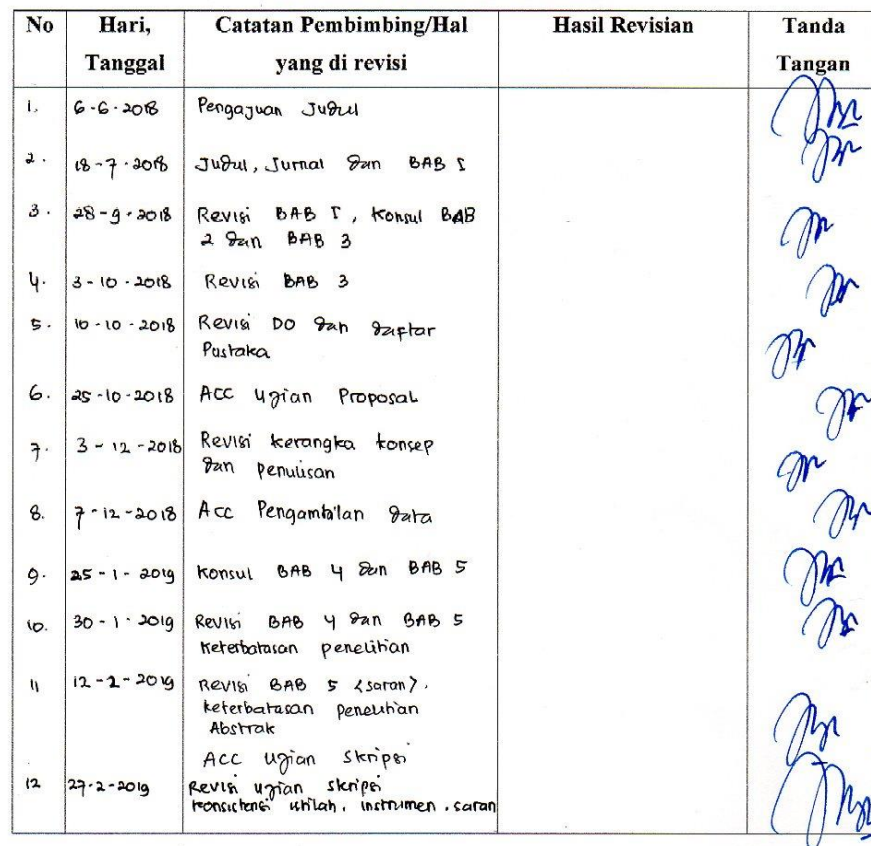 No Hari, Catatan Pembimbing/Hal Hasil Revisian Tanda
Tanggal yang di revisi Tangan
1. 6-6-2018 Pengajuan Judul
2. 18-7-2018 Judul, Jurnal dan BAB I
3. 28-9-2018 Revisi BAB I, Konsul BAB
2 dan BAB 3
4. 3-10-2018 Revisi BAB 3
5. 10-10-2018 Revisi DO dan daftar
Pustaka
6. 25-10-2018 ACC Ujian Proposal
7. 3-12-2018 Revisi kerangka konsep
dan penulisan
8. 7-12-2018 Acc Pengambilan data
9. 25-1-2019 Konsul BAB 4 dan BAB 5
10. 30-1-2019 Revisi BAB 4 dan BAB 5
keterbatasan penelitian
11 12-2-2019 Revisi BAB 5 (saran),
keterbatasan penelitian
Abstrak
ACC ujian skripsi
12 27-2-2019 Revisi ujian skripsi
konsistensi istilah, instrumen, saran